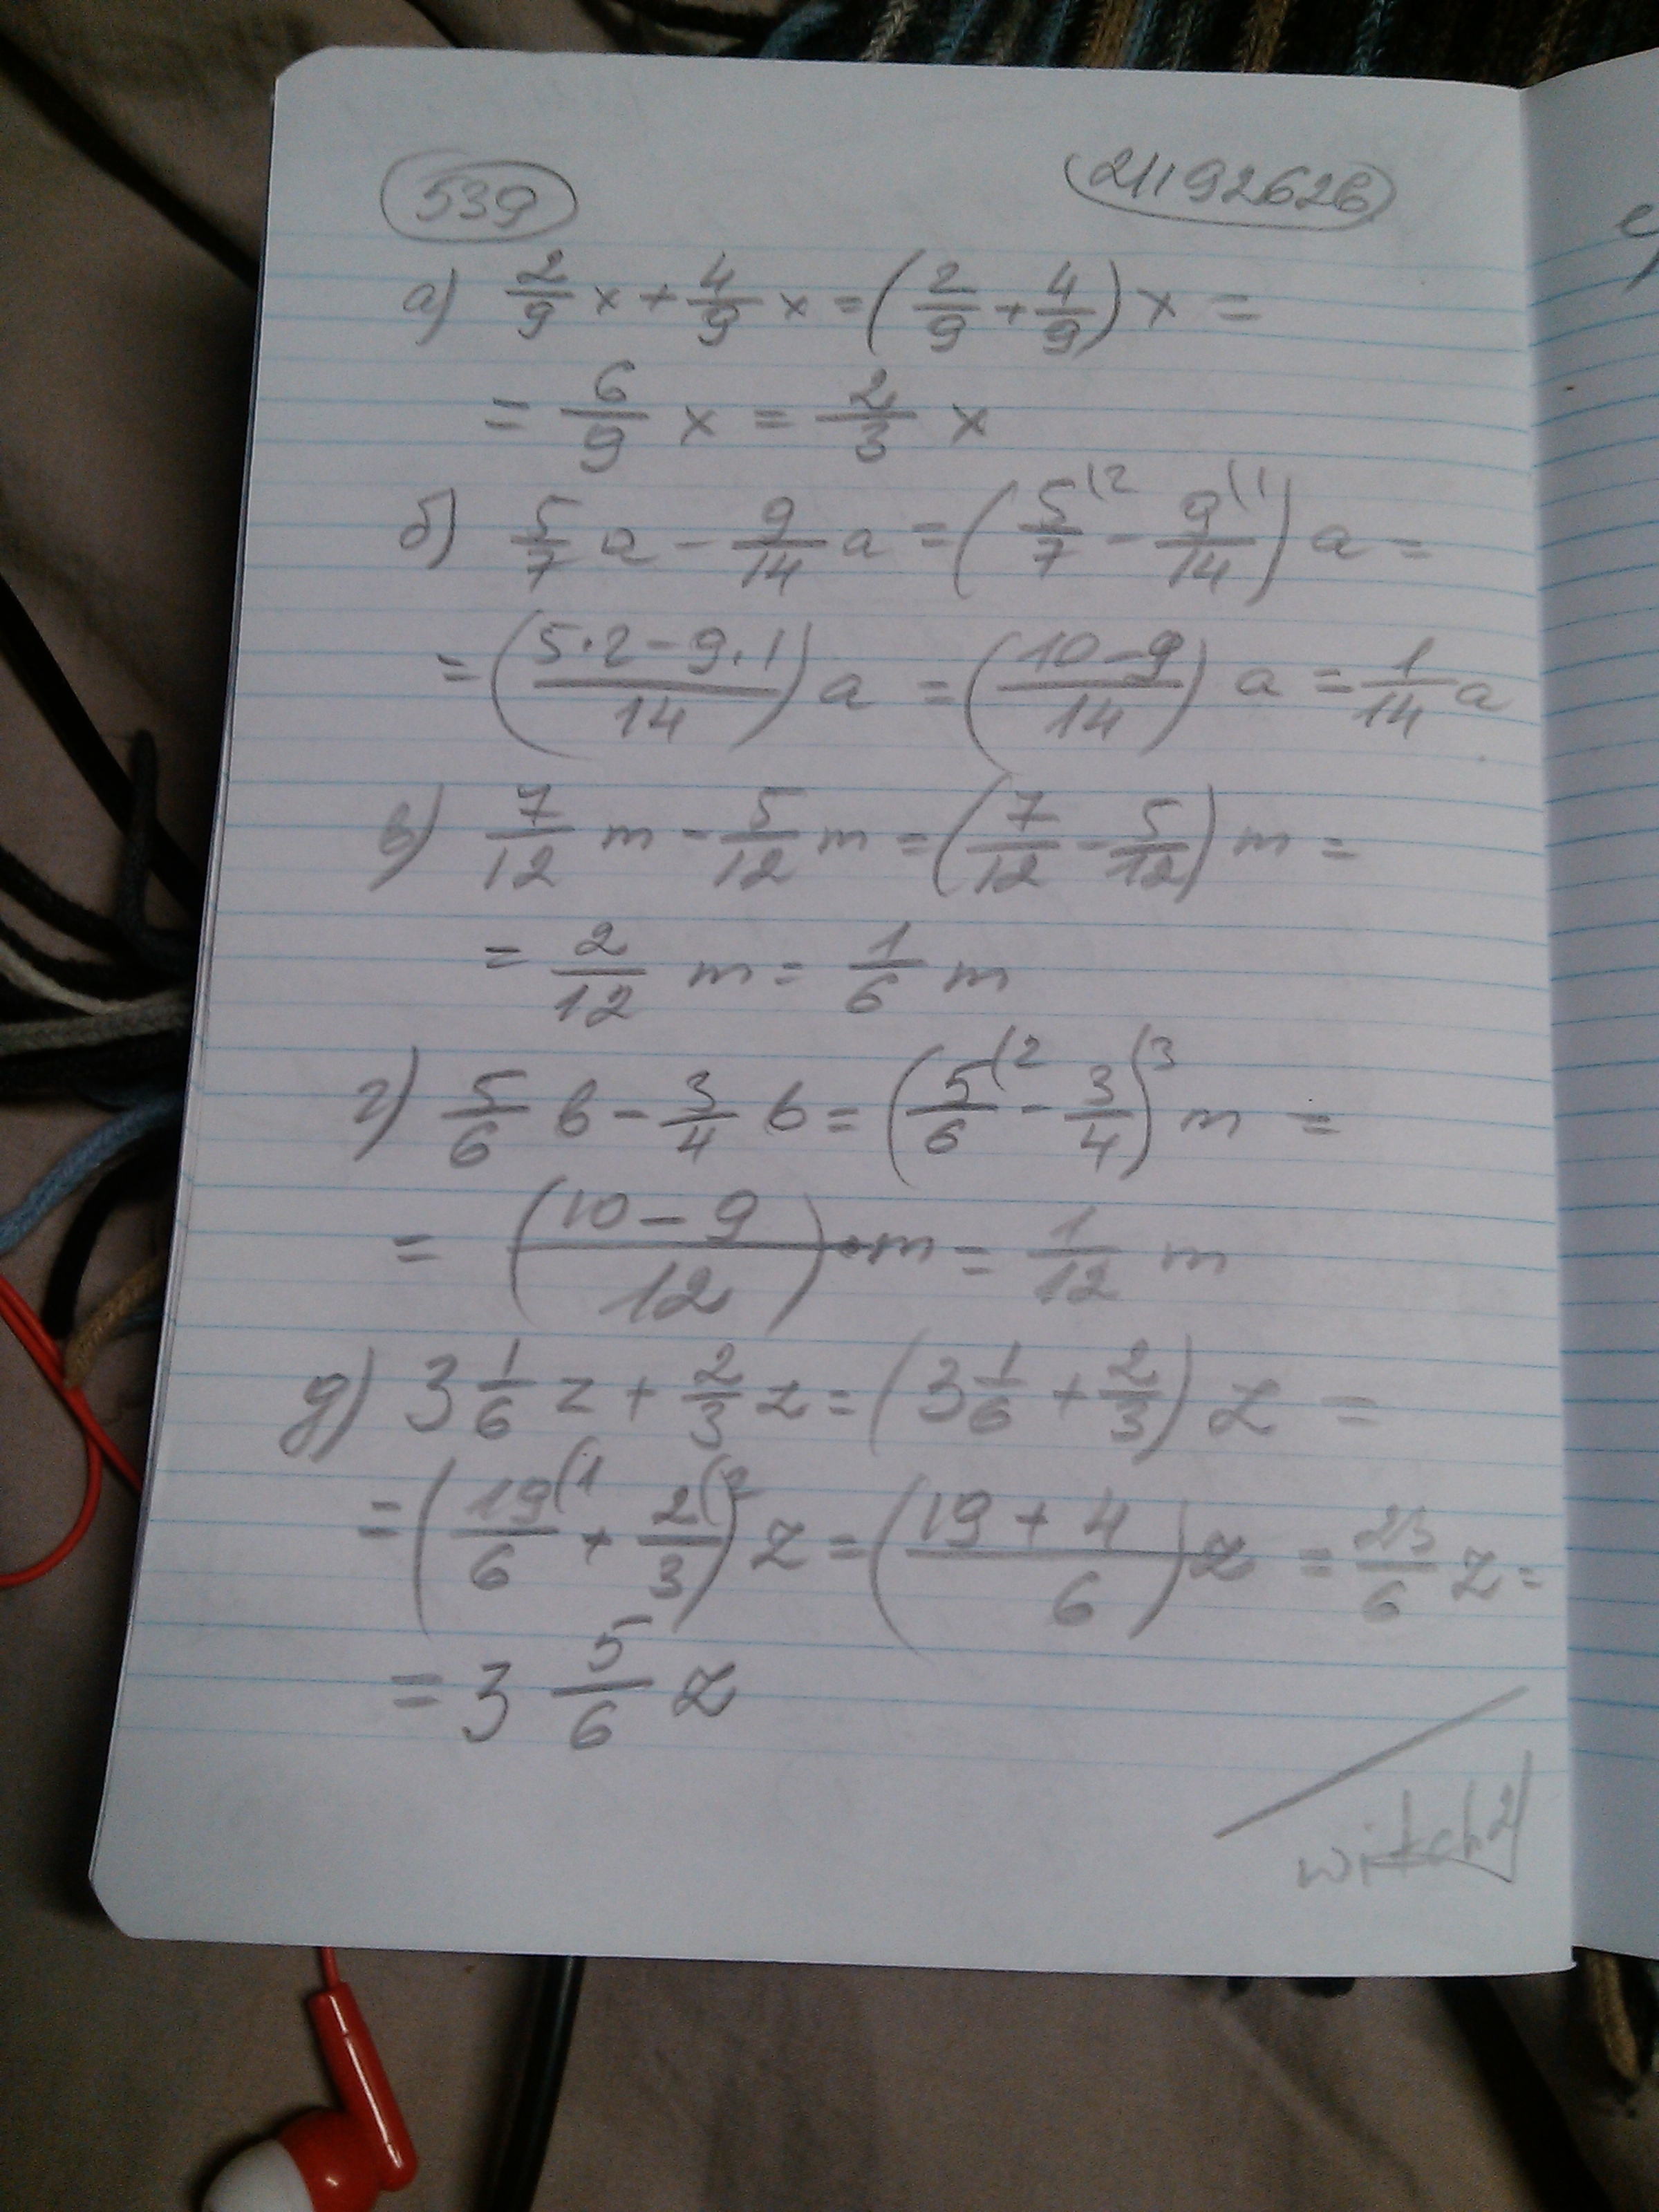 539 21192626
а) 2/9 x + 4/9 x = (2/9 + 4/9) x =
= 6/9 x = 2/3 x
б) 5/7 a - 9/14 a = (5/7 (2 - 9/14 (1) a =
= ((5·2 - 9·1)/14) a = ((10-9)/14) a = 1/14 a
в) 7/12 m - 5/12 m = (7/12 - 5/12) m =
= 2/12 m = 1/6 m
г) 5/6 b - 3/4 b = (5/6 (2 - 3/4)(3 m =
= ((10-9)/12) · m = 1/12 m
д) 3 1/6 z + 2/3 z = (3 1/6 + 2/3) z =
= (19/6 (1 + 2/3 (2) z = ((19+4)/6) z = 23/6 z =
= 3 5/6 z
witch2